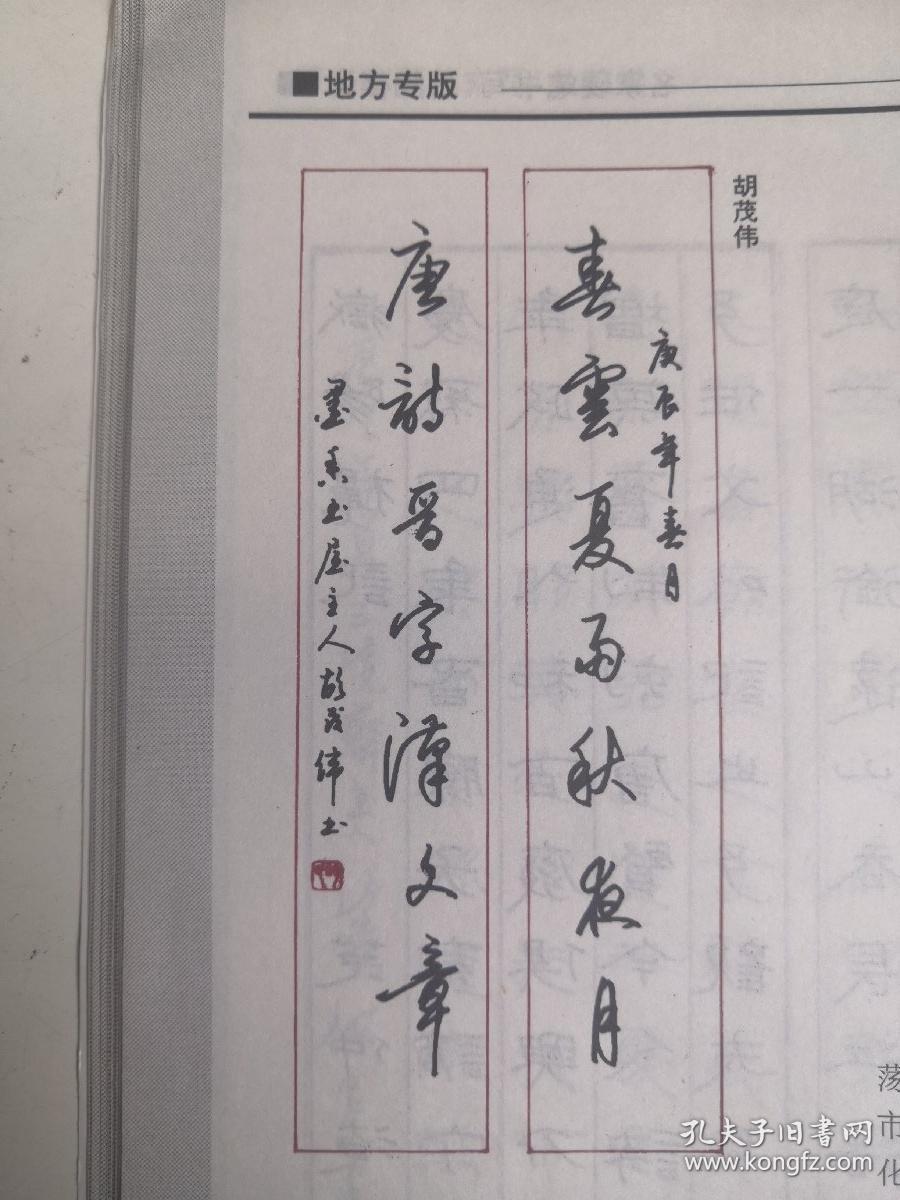 ■地方专版
胡茂伟
庚辰年春月
春雲夏雨秋夜月
唐詩晉字漢文章
墨香书屋主人胡茂伟书
荡
市
化
孔夫子旧书网
www.kongfz.com